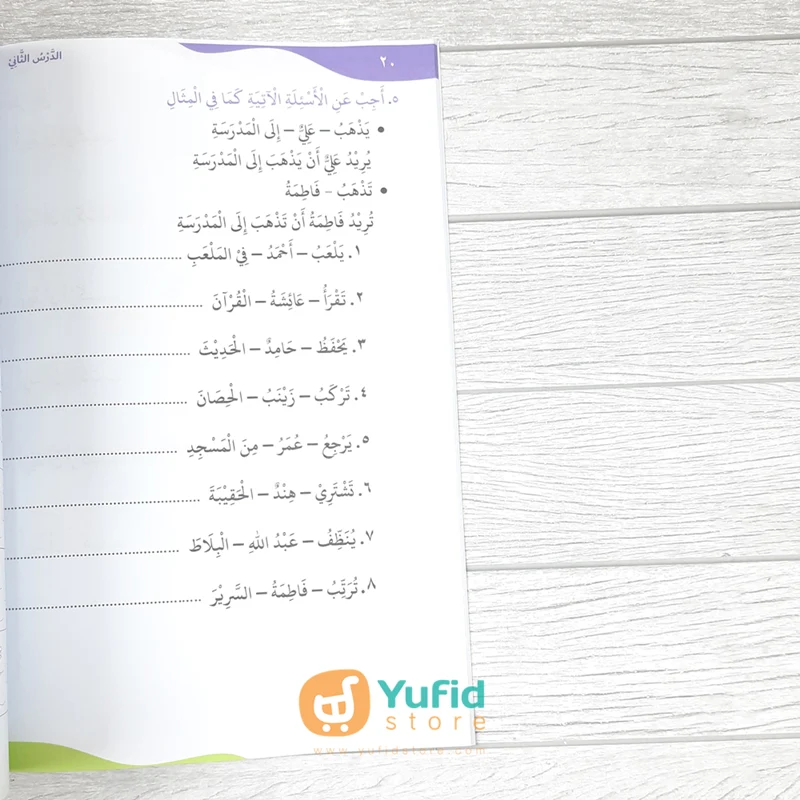 الدَّرْسُ الثَّانِيْ
٢٠
٥. أَجِبْ عَنِ الْأَسْئِلَةِ الْآتِيَةِ كَمَا فِي الْمِثَالِ
• يَذْهَبُ – عَلِيٌّ – إِلَى الْمَدْرَسَةِ
يُرِيْدُ عَلِيٌّ أَنْ يَذْهَبَ إِلَى الْمَدْرَسَةِ
• تَذْهَبُ - فَاطِمَةُ
تُرِيْدُ فَاطِمَةُ أَنْ تَذْهَبَ إِلَى الْمَدْرَسَةِ
١. يَلْعَبُ – أَحْمَدُ – فِيْ المَلْعَبِ ........................
٢. تَقْرَأُ – عَائِشَةُ – الْقُرْآنَ ........................
٣. يَحْفَظُ – حَامِدٌ – الْحَدِيْثَ ........................
٤. تَرْكَبُ – زَيْنَبُ – الْحِصَانَ ........................
٥. يَرْجِعُ – عُمَرُ – مِنَ الْمَسْجِدِ ........................
٦. تَشْتَرِيْ – هِنْدٌ – الْحَقِيْبَةَ ........................
٧. يُنَظِّفُ – عَبْدُ اللهِ – الْبِلَاطَ ........................
٨. تُرَتِّبُ – فَاطِمَةُ – السَّرِيْرَ ........................
Yufid
store
www.yufidstore.com